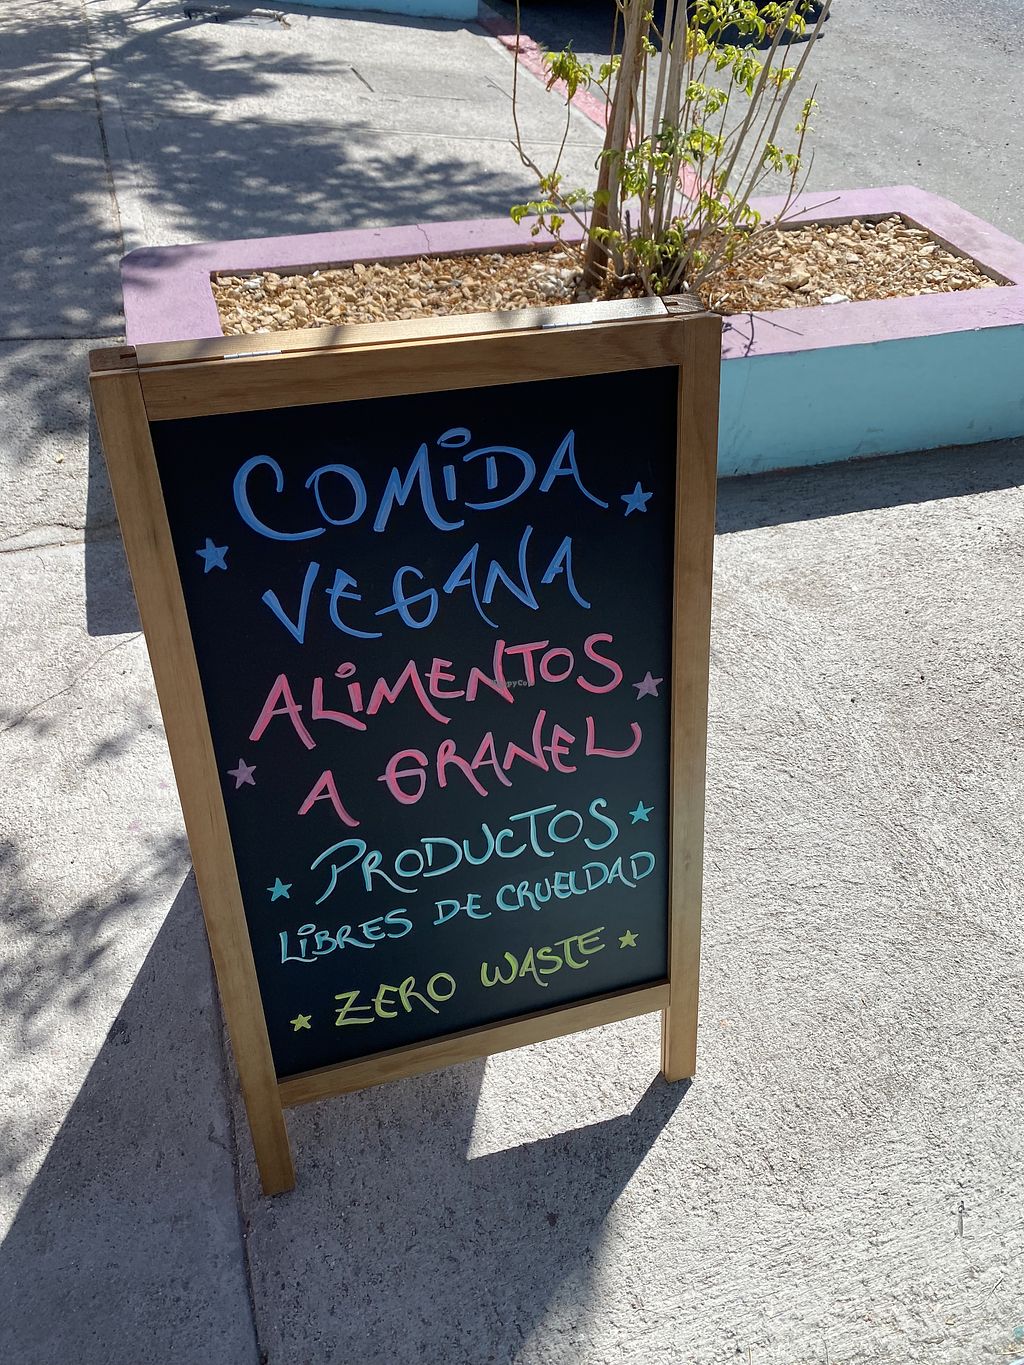 COMIDA
VEGANA
ALIMENTOS
A GRANEL
PRODUCTOS
LIBRES DE CRUELDAD
ZERO WASTE